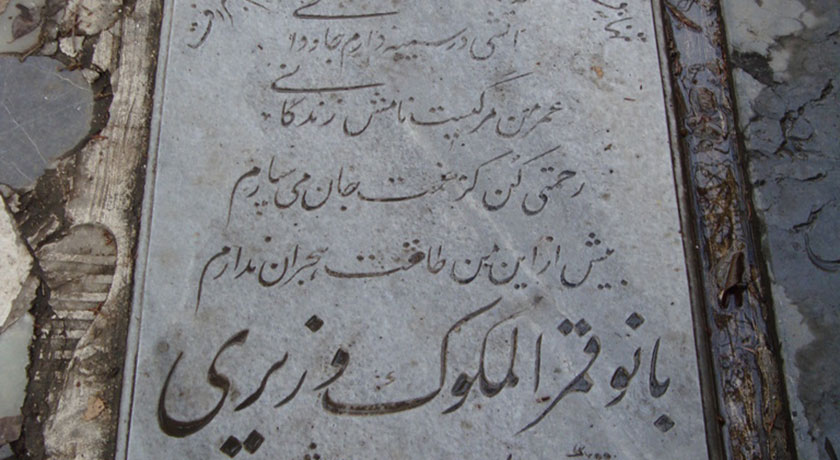 آتشی در سینه دارم جاودانی
عمر من مرگیست نامش زندگانی
رحمتی کن کز غمت جان می سپارم
بیش از این من طاقت هجران ندارم
بانو قمرالملوک وزیری